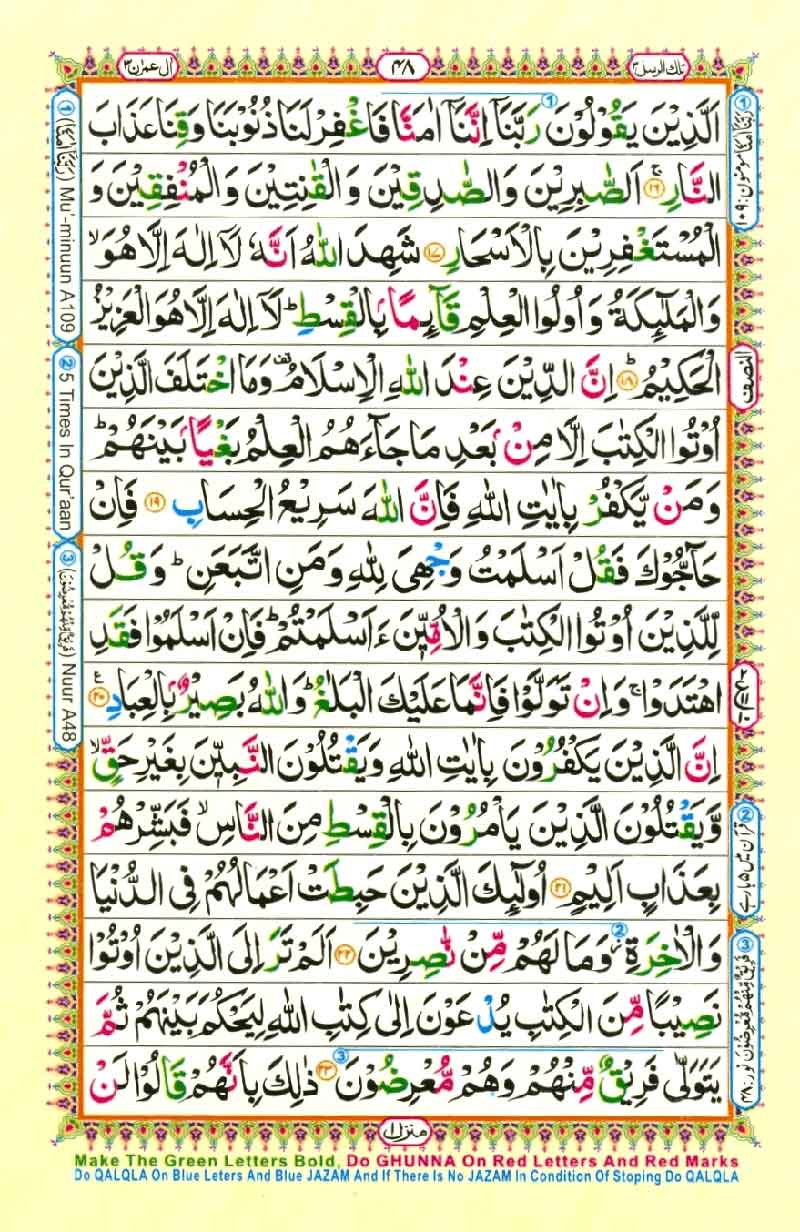 تلك الرسل ٣
٤٨
اٰل عمرٰن ٣
اَلَّذِيْنَ يَقُوْلُوْنَ رَبَّنَاۤ اِنَّنَاۤ اٰمَنَّا فَاغْفِرْ لَنَا ذُنُوْبَنَا وَقِنَا عَذَابَ
النَّارِ ۚ﴿۱۶﴾ اَلصّٰبِرِيْنَ وَالصّٰدِقِيْنَ وَالْقٰنِتِيْنَ وَالْمُنْفِقِيْنَ وَ
الْمُسْتَغْفِرِيْنَ بِالْاَسْحَارِ ﴿۱۷﴾ شَهِدَ اللّٰهُ اَنَّهٗ لَاۤ اِلٰهَ اِلَّا هُوَ ۙ
وَالْمَلٰٓئِكَةُ وَاُولُوا الْعِلْمِ قَآئِمًۢا بِالْقِسْطِ ؕ لَاۤ اِلٰهَ اِلَّا هُوَ الْعَزِيْزُ
الْحَكِيْمُ ؕ﴿۱۸﴾ اِنَّ الدِّيْنَ عِنْدَ اللّٰهِ الْاِسْلَامُ ۟ وَمَا اخْتَلَفَ الَّذِيْنَ
اُوْتُوا الْكِتٰبَ اِلَّا مِنْۢ بَعْدِ مَا جَآءَهُمُ الْعِلْمُ بَغْيًۢا بَيْنَهُمْ ؕ
وَمَنْ يَّكْفُرْ بِاٰيٰتِ اللّٰهِ فَاِنَّ اللّٰهَ سَرِيْعُ الْحِسَابِ ﴿۱۹﴾ فَاِنْ
حَآجُّوْكَ فَقُلْ اَسْلَمْتُ وَجْهِيَ لِلّٰهِ وَمَنِ اتَّبَعَنِ ؕ وَقُلْ
لِّلَّذِيْنَ اُوْتُوا الْكِتٰبَ وَالْاُمِّيّٖنَ ءَاَسْلَمْتُمْ ؕ فَاِنْ اَسْلَمُوْا فَقَدِ
اهْتَدَوْا ۚ وَاِنْ تَوَلَّوْا فَاِنَّمَا عَلَيْكَ الْبَلٰغُ ؕ وَاللّٰهُ بَصِيْرٌۢ بِالْعِبَادِ ﴿۲۰﴾
اِنَّ الَّذِيْنَ يَكْفُرُوْنَ بِاٰيٰتِ اللّٰهِ وَيَقْتُلُوْنَ النَّبِيّٖنَ بِغَيْرِ حَقٍّ ۙ
وَّيَقْتُلُوْنَ الَّذِيْنَ يَاْمُرُوْنَ بِالْقِسْطِ مِنَ النَّاسِ ۙ فَبَشِّرْهُمْ
بِعَذَابٍ اَلِيْمٍ ﴿۲۱﴾ اُولٰٓئِكَ الَّذِيْنَ حَبِطَتْ اَعْمَالُهُمْ فِي الدُّنْيَا
وَالْاٰخِرَةِ ؗ وَمَا لَهُمْ مِّنْ نّٰصِرِيْنَ ﴿۲۲﴾ اَلَمْ تَرَ اِلَى الَّذِيْنَ اُوْتُوْا
نَصِيْبًا مِّنَ الْكِتٰبِ يُدْعَوْنَ اِلٰى كِتٰبِ اللّٰهِ لِيَحْكُمَ بَيْنَهُمْ ثُمَّ
يَتَوَلّٰى فَرِيْقٌ مِّنْهُمْ وَهُمْ مُّعْرِضُوْنَ ﴿۲۳﴾ ذٰلِكَ بِاَنَّهُمْ قَالُوْا لَنْ
منزل ١
① (رَبَّنَا اٰمَنَّا) Mu'-minuun A109
② 5 Times In Qur'aan
③ (فَرِيْقٌ مِّنْهُمْ مُّعْرِضُوْنَ) Nuur A48
① رَبَّنَا اٰمَنَّا مؤمنون: ١٠٩
النصف
② قرآن میں ۵ بار ہے
③ فَرِيْقٌ مِّنْهُمْ مُّعْرِضُوْنَ نور: ۴۸
Make The Green Letters Bold, Do GHUNNA On Red Letters And Red Marks
Do QALQLA On Blue Leters And Blue JAZAM And If There Is No JAZAM In Condition Of Stoping Do QALQLA